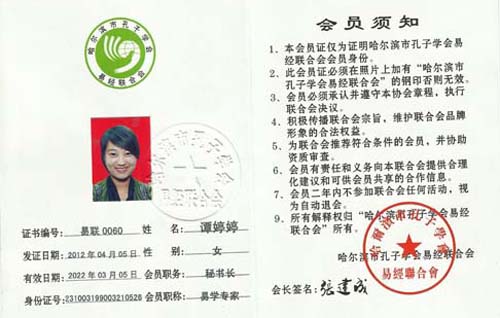 哈尔滨市孔子学会
易经联合会
哈尔滨市孔子学会
易经联合会
证书编号: 易联0060 姓 名: 谭婷婷
发证日期: 2012年04月05日 性 别: 女
有效日期: 2022年03月05日 会员职务: 秘书长
身份证号: 231003199003210526 会员职称: 易学专家
会员须知
1、本会员证仅为证明哈尔滨市孔子学会易
经联合会会员身份。
2、此会员证必须在照片上加有“哈尔滨市
孔子学会易经联合会”的钢印否则无效。
3、会员必须承认并遵守本协会章程,执行
联合会决议。
4、积极传播联合会宗旨,维护联合会品牌
形象的合法权益。
5、为联合会推荐符合条件的会员,并协助
资质审查。
6、会员有责任和义务向本联合会提供合理
化建议和可供会员共享的合作信息。
7、会员二年内不参加联合会任何活动,视
为自动退会。
9、所有解释权归“哈尔滨市孔子学会易经
联合会”所有。
哈尔滨市孔子学会易经联合会
哈爾濱市孔子學會
易經聯合會
会长签名: 张建成